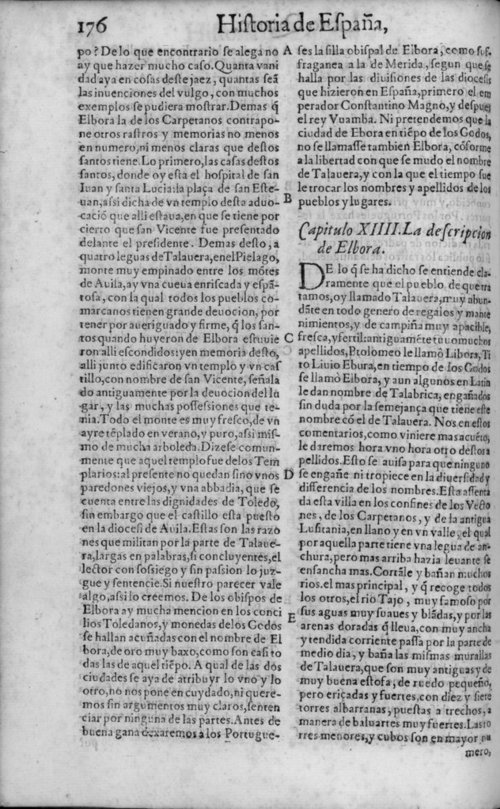 176 Historia de España,
po? De lo que en contrario se alega no
ay que hazer mucho caso. Quanta vani
dad aya en cosas deste jaez, quantas seā
las inuenciones del vulgo, con muchos
exemplos se pudiera mostrar. Demas q̄
Elbora la de los Carpetanos contrapo-
ne otros rastros y memorias no menos
en numero, ni menos claras que destos
santos tiene. Lo primero, las casas destos
santos, donde oy esta el hospital de san
Iuan y santa Lucia: la plaça de san Este-
uan, assi dicha de vn templo desta aduo-
cació que alli estaua, en que se tiene por
cierto que san Vicente fue presentado
delante el presidente. Demas desto, a
quatro leguas de Talauera, en el Pielago,
monte muy empinado entre los mótes
de Auila, ay vna cueua enriscada y espā-
tosa, con la qual todos los pueblos co-
marcanos tienen grande deuocion, por
tener por aueriguado y firme, q̄ los san-
tos quando huyeron de Elbora estuuie
ron alli escondidos: y en memoria desto,
alli junto edificaron vn templo y vn cas
tillo, con nombre de san Vicente, señala
do antiguamente por la deuocion del lu
gar, y las muchas possessiones que te-
nia. Todo el monte es muy fresco, de vn
ayre tēplado en verano, y puro, assi mis-
mo de mucha arboleda. Dizese comun-
mente que aquel templo fue de los Tem
plarios: al presente no quedan sino vnos
paredones viejos, y vna abbadia, que se
cuenta entre las dignidades de Toledo,
sin embargo que el castillo esta puesto
en la diocesi de Auila. Estas son las razo
nes que militan por la parte de Talaue-
ra, largas en palabras, si concluyentes, el
lector con sossiego y sin passion lo juz-
gue y sentencie. Si nuestro parecer vale
algo, assi lo creemos. De los obispos de
Elbora ay mucha mencion en los conci
lios Toledanos, y monedas de los Godos
se hallan acuñadas con el nombre de El
bora, de oro muy baxo, como son casi to
das las de aquel tiēpo. A qual de las dos
ciudades se aya de atribuyr lo vno y lo
otro, no nos pone en cuydado, ni quere-
mos sin argumentos muy claros, senten
ciar por ninguna de las partes. Antes de
buena gana dexaremos a los Portugue-
A ses la silla obispal de Elbora, como suf-
fraganea a la de Merida, segun que se
halla por las diuisiones de las diocesis
que hizieron en España, primero el em
perador Constantino Magno, y despues
el rey Vuamba. Ni pretendemos que la
ciudad de Ebora en tiēpo de los Godos,
no se llamasse tambien Elbora, cóforme
a la libertad con que se mudo el nombre
de Talauera, y con la que el tiempo sue
le trocar los nombres y apellidos de los
B pueblos y lugares.
Capitulo XIIII. La descripcion
de Elbora.
DE lo q̄ se ha dicho se entiende cla-
ramente que el pueblo de que tra
tamos, oy llamado Talauera, muy abun-
dāte en todo genero de regalos y mante
nimientos, y de campiña muy apacible,
C fresca, y fertil: antiguamēte tuuo muchos
apellidos, Ptolomeo le llamò Libora, Ti
to Liuio Ebura, en tiempo de los Godos
se llamò Elbora, y aun algunos en Latin
le dan nombre de Talabrica, engañados
sin duda por la semejança que tiene este
nombre có el de Talauera. Nos en estos
comentarios, como viniere mas a cuēto,
le daremos hora vno hora otro destos a
pellidos. Esto se auisa para que ninguno
D se engañe ni tropiece en la diuersidad y
differencia de los nombres. Esta assenta
da esta villa en los confines de los Vecto
nes, de los Carpetanos, y de la antigua
Lusitania, en llano y en vn valle, el qual
por aquella parte tiene vna legua de an-
chura, pero mas arriba hazia leuante se
ensancha mas. Cortāle y bañan muchos
rios, el mas principal, y q̄ recoge todos
los otros, el rio Tajo, muy famoso por
E sus aguas muy suaues y blādas, y por las
arenas doradas q̄ lleua, con muy ancha
y tendida corriente passa por la parte de
medio dia, y baña las mismas murallas
de Talauera, que son muy antiguas y de
muy buena estofa, de ruedo pequeño,
pero eriçadas y fuertes, con diez y siete
torres albarranas, puestas a trechos, a
manera de baluartes muy fuertes. Las to
rres menores, y cubos son en mayor nu
mero,